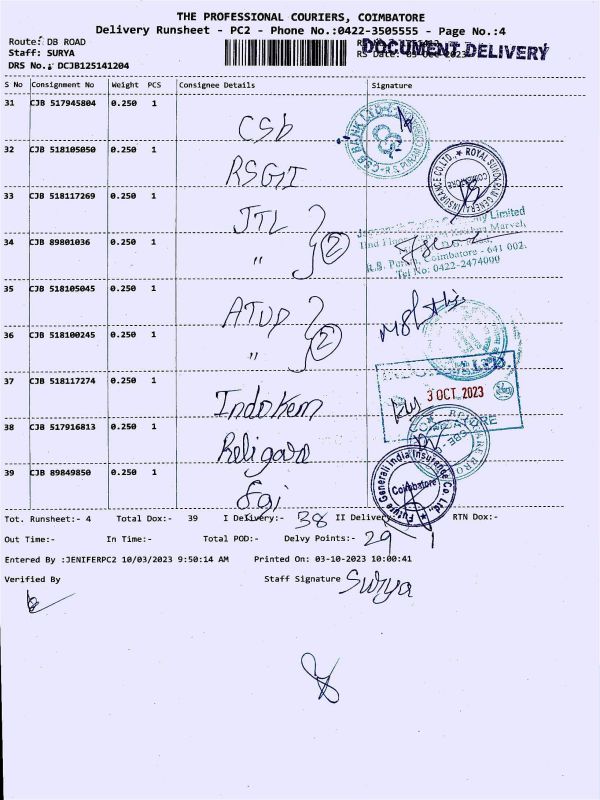 THE PROFESSIONAL COURIERS, COIMBATORE
Delivery Runsheet - PC2 - Phone No.:0422-3505555 - Page No.:4
Route: DB ROAD
Staff: SURYA
DOCUMENT DELIVERY
DRS No.: DCJB125141204
S No Consignment No Weight PCS Consignee Details Signature
31 CJB 517945804 0.250 1
CSb
32 CJB 518105050 0.250 1
RSGI
ROYAL SUNDARAM GENERAL INSURANCE CO. LTD.,
COIMBATORE
33 CJB 518117269 0.250 1
JTL
Limited
34 CJB 89801036 0.250 1
" 2
Coimbatore - 641 002.
Tel No: 0422-2474000
35 CJB 518105045 0.250 1
ATUP
36 CJB 518100245 0.250 1
" 2
37 CJB 518117274 0.250 1
3 OCT 2023
Indokem
38 CJB 517916813 0.250 1
Religare
39 CJB 89849850 0.250 1
Future Generali India Insurance Co. Ltd.,
Coimbatore
fgi
Tot. Runsheet:- 4 Total Dox:- 39 I Delivery:- 38 II Delivery RTN Dox:-
Out Time:- In Time:- Total POD:- Delvy Points:- 29 1
Entered By :JENIFERPC2 10/03/2023 9:50:14 AM Printed On: 03-10-2023 10:00:41
Verified By Staff Signature Surya